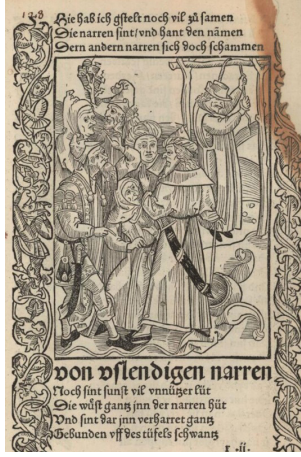 Hie hab ich gstelt noch vil zů samen
Die narren sint / vnd hant den nãmen
Dern andern narren sich doch schammen
von vslendigen narren
Noch sint sunst vil vnnützer lüt
Die wůst gantz jnn der narren hüt
Vnd sint dar jnn verharret gantz
Gebunden vff des tüfels schwantz